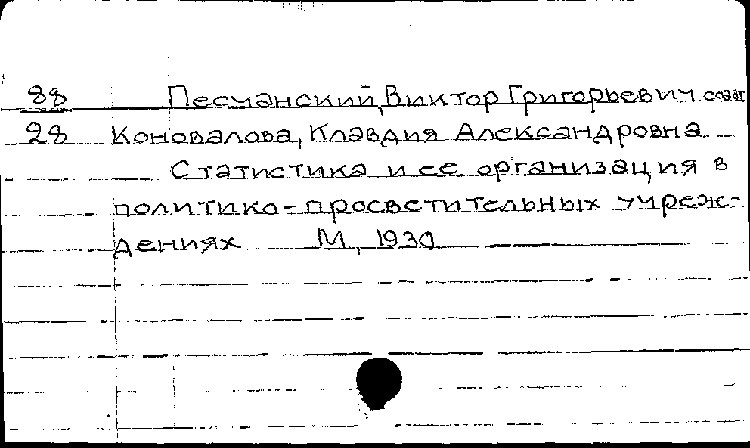 88 Песчанский, Виктор Григорьевич соавт
28 Коновалова, Клавдия Александровна
Статистика и ее организация в
политико-просветительных учреж-
дениях М, 1930